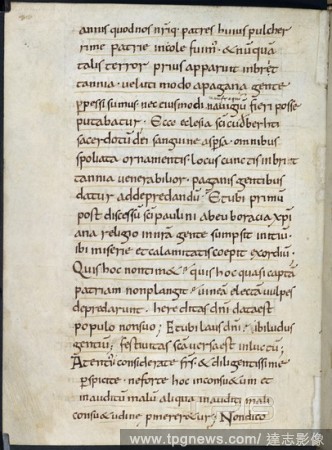 annis quod nos nr̃iq; patres huius pulcher
rime patrie incole fuim̃ · & nũquã
talis terror prius apparuit inbrit
tannia · veluti modo apagana gente
ꝑpessi sumus nec eiusmodi nauigiũ fieri posse
putabatur · Ecce eclesia sc̃i cudberhti
sacerdotũ dei sanguine aspsa, omnibus
spoliata ornamentis · locus cunctis inbrit
tannia venerabilior · paganis gentibus
datur addepredandũ · Et ubi primũ
post discessũ sc̃i paulini ab euboracia xp̃i
ana religio in nr̃a gente sumpsit initiũ ·
ibi miserie et calamitatis coepit exordiũ ·
Quis hoc nontim& · quis hoc quasi captã
patriam nonplangit · uineã electã vulpes
depredarunt · hereditas dñi dataest
populo nonsuo ; Et ubi laus dñi · ibi ludus
gentiũ, festiuitas sc̃a versa est inluctũ ;
Attenti' considerate fr̃s · & diligentissime
ꝑspicite · neforte hoc inconsu&um et
inauditũ malũ aliqua inauditi mali
consu&udine pmerer&ur ; Nondico
www.tpgnews.com / 達志影像